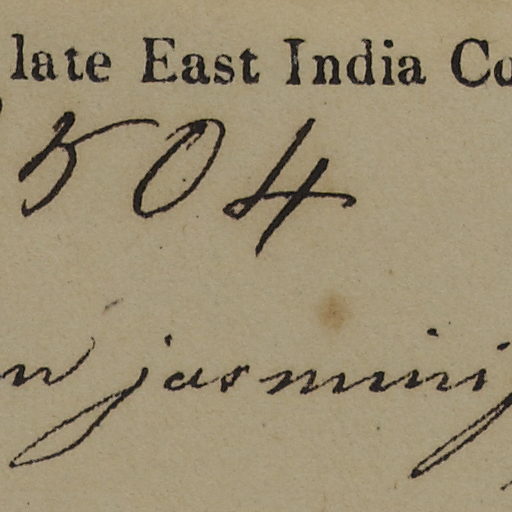 late East India Co
504
n jasmini